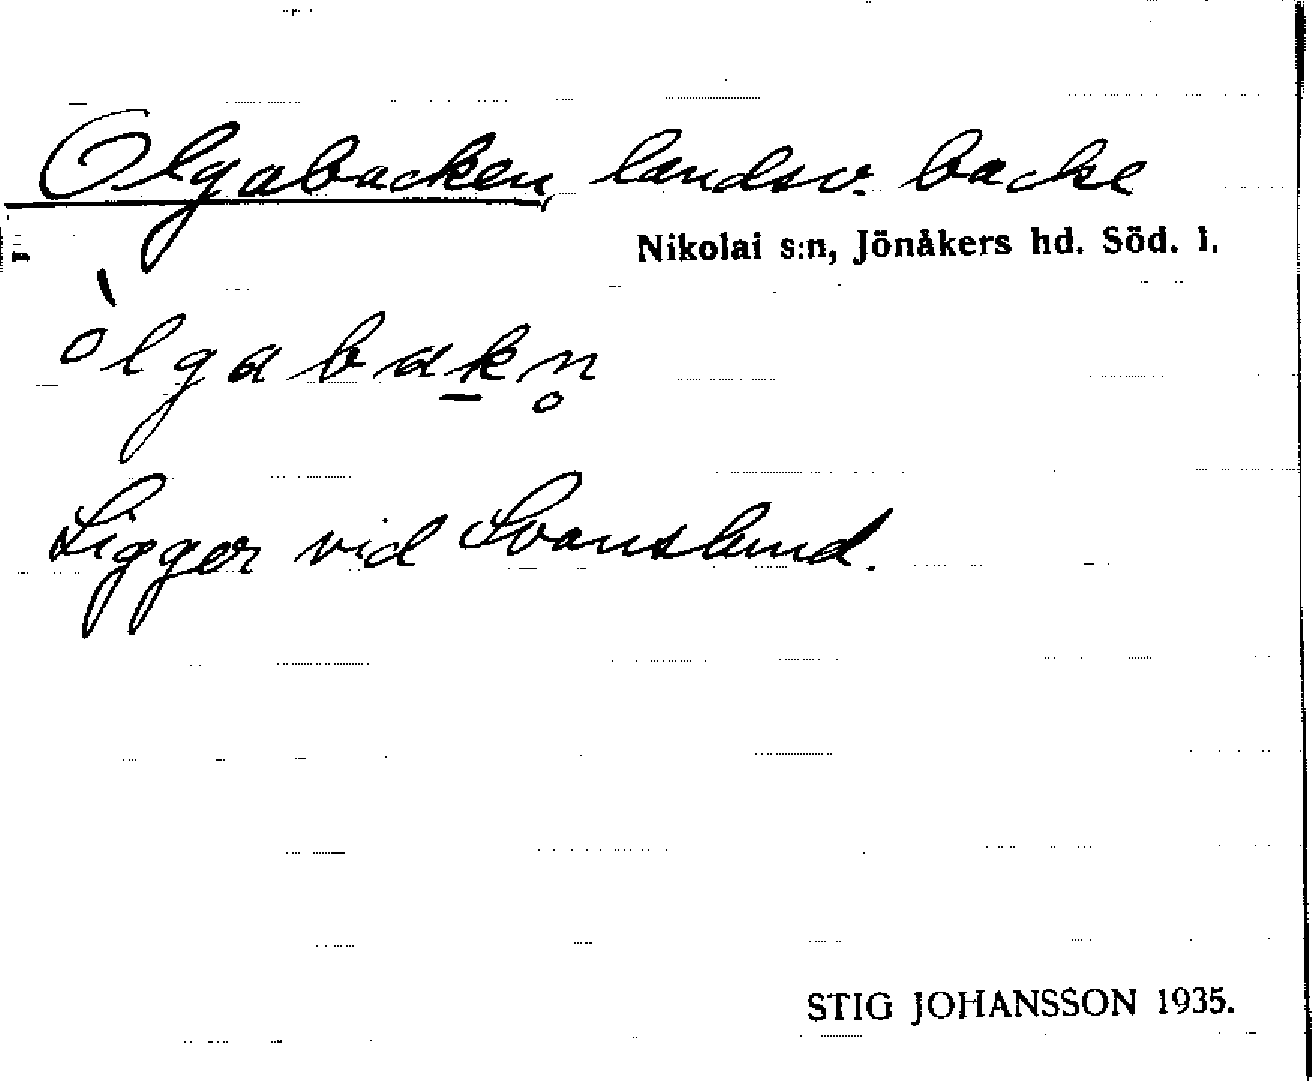 Olgabacken, landsv. backe
Nikolai s:n, Jönåkers hd. Söd. l.
òlgabak̲n̥
Ligger vid Svanslund.
STIG JOHANSSON 1935.